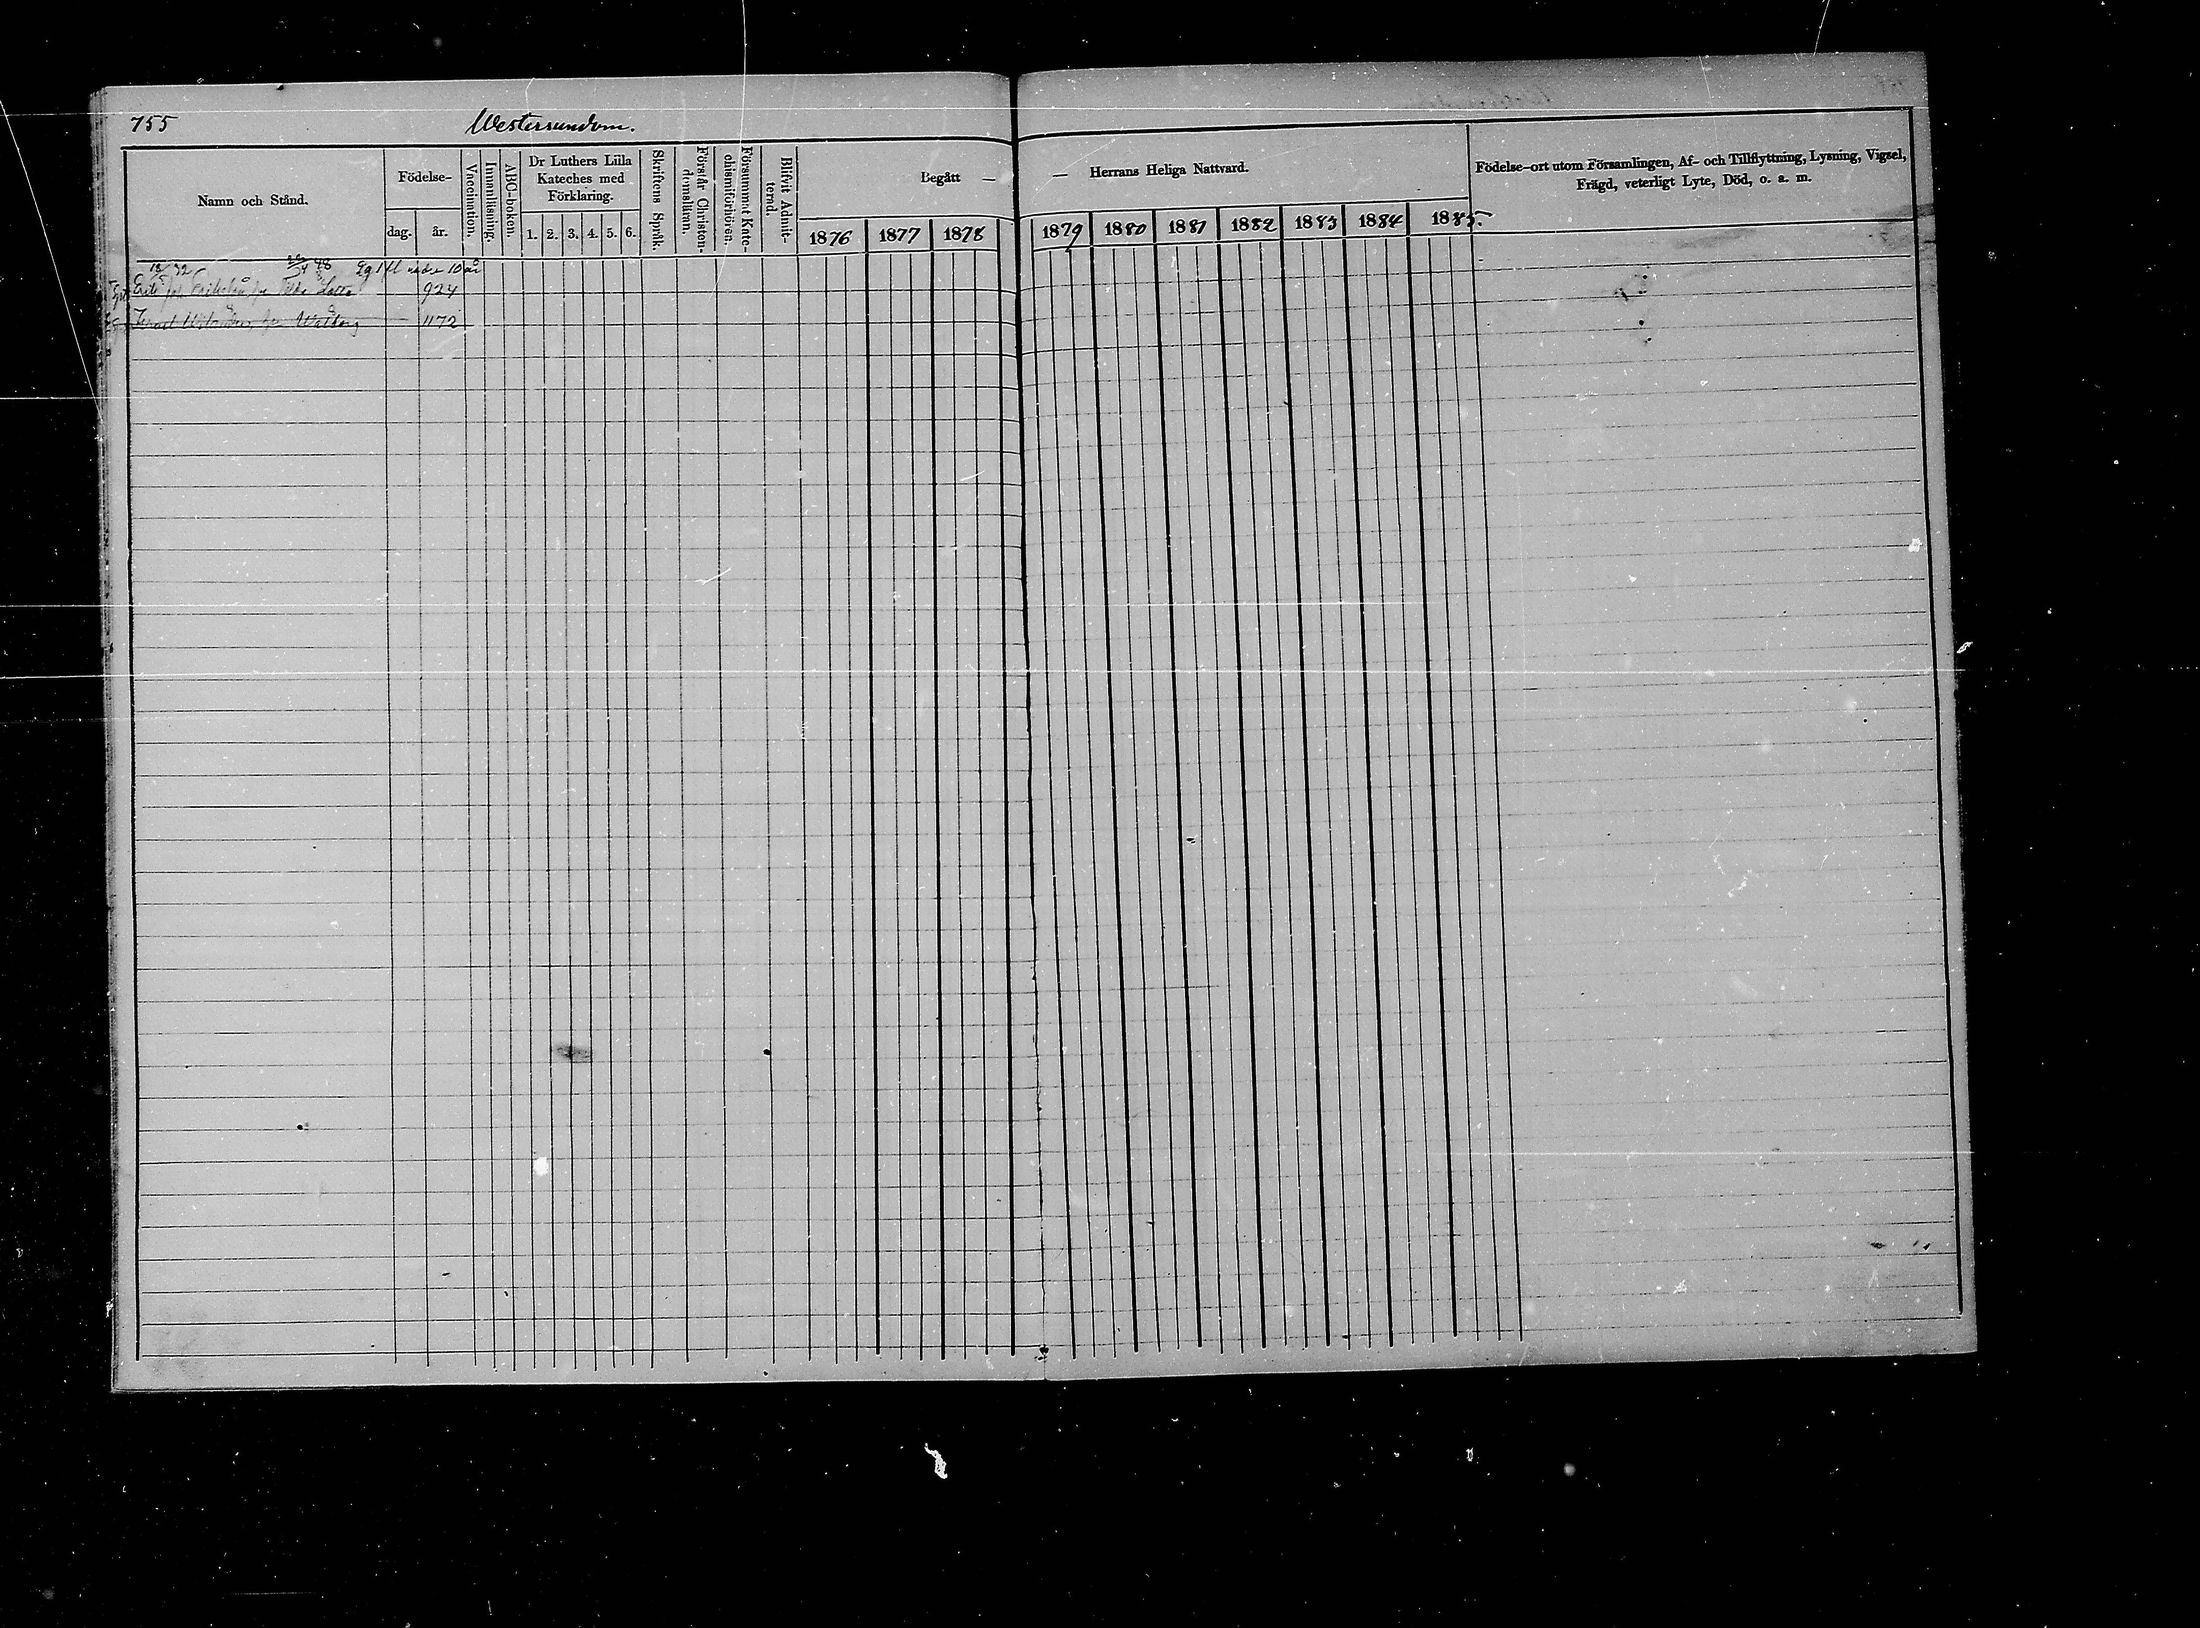 755
Westersundom.
Namn och Stånd.
Födelse-
dag.
år.
Vaccination.
Innanläsning.
ABC-boken.
Dr Luthers Lilla
Kateches med
Förklaring.
1. 2. 3. 4. 5. 6.
Skriftens Språk.
Förstår Christen-
domsläran.
Försummat Kate-
chismiförhören.
Blifvit Admit-
terad.
Begått —
1876 1877 1878
— Herrans Heliga Nattvard.
1879 1880 1881 1882 1883 1884 1885.
Födelse-ort utom Församlingen, Af- och Tillflyttning, Lysning, Vigsel,
Frägd, veterligt Lyte, Död, o. a. m.
10 år
924
1172